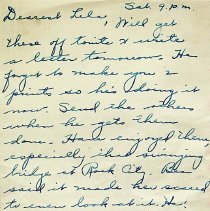 Sat. 9. p.m.
Dearest Lela, Will get
these off tonite & write
a letter tomorrow. He
forgot to make you 2
prints so he's doing it
now. Send the others
when he gets them
done. Have enjoyed them
especially that swinging
bridge at Rock City. Blan
said it made her scared
to even look at it. Ha!